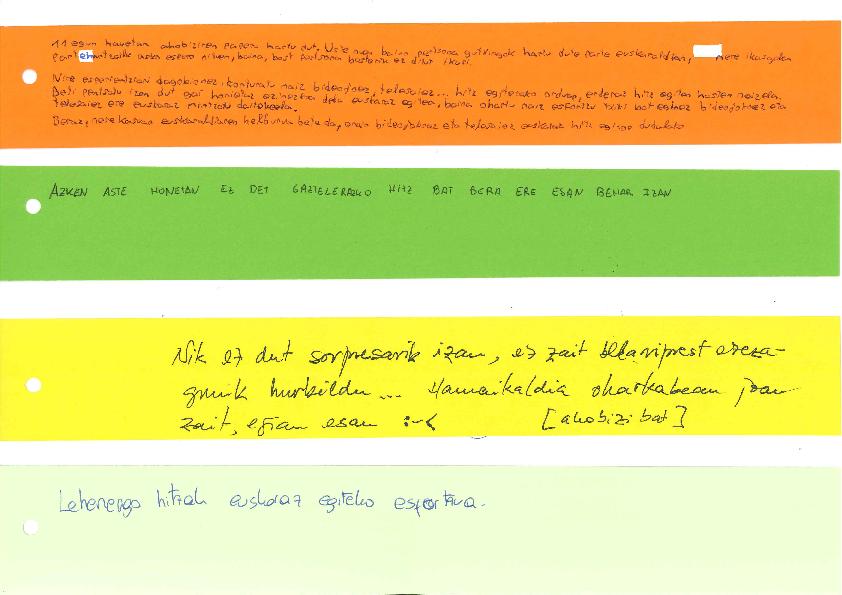 11 egun hauetan ahobiziren papera hartu dut. Uste nuen baino pertsona gutxiagok hartu dute parte euskaraldian, nere ikasgelan
parte asko espero nituen, baina, bost pertsona besterik ez ditut ikusi.
Nire esperientziari dagokionez, konturatu naiz bideojokoez, telesaiez... hitz egiterako orduan, erderaz hitz egiten hasten naizela.
Beti pentsatu izan dut gai horietaz ezinezkoa dela euskaraz egitea, baina ohartu naiz esfortzu txiki bat eginez bideojokoez eta
telesaiez ere euskaraz mintzatu daitekeela.
Beraz, nere kasuan euskaraldiaren helburua bete da, orain bideojokoez eta telesaiez euskaraz hitz egingo dudalako
AZKEN ASTE HONETAN EZ DET GAZTELERAZKO HITZ BAT BERA ERE ESAN BEHAR IZAN
Nik ez dut sorpresarik izan, ez zait belariprest ezeza-
gunik hurbildu... Hamaikaldia oharkabean joan
zait, egian esan :-<  [ahobizi bat]
Lehenengo hitzak euskaraz egiteko esfortzua.